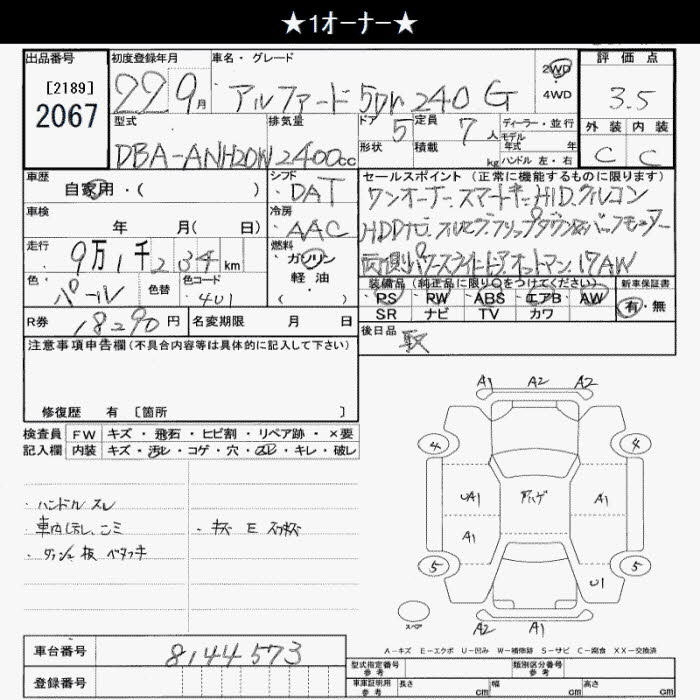 ★1オーナー★
出品番号
[2189]
2067
初度登録年月
22 9月
車名・グレード
アルファード 5Dr 240 G
2WD
4WD
評価点
3.5
外装 内装
C C
型式
DBA-ANH20W
排気量
2400cc
ドア 5
形状
定員 7人
積載 kg
ディーラー・並行
モデル
年式 年
ハンドル 左・右
車歴
自家用・( )
シフト
DAT
セールスポイント (正常に機能するものに限ります)
ワンオーナー.スマートキー.HID.クルコン
HDDナビ.フルセグ.フリップダウン&バックモニター
両側パワースライドドア.オットマン.17AW
車検
年 月( 日)
冷房
AAC
走行
9万1千234km
燃料
ガソリン
軽油
( )
色
パール
色替
色コード
401
装備品 (純正品に限り○をつけてください)
PS RW ABS エアB AW
SR ナビ TV カワ
新車保証書
有・無
R券 18290円
名変期限 月 日
後日品
取
注意事項申告欄(不具合内容等は具体的に記入して下さい)
修復歴 有 [箇所 ]
検査員 FW キズ・飛石・ヒビ割・リペア跡・×要
記入欄 内装 キズ・汚レ・コゲ・穴・スレ・キレ・破レ
・ハンドル スレ
・車内汚レ、ゴミ
・ダッシュ板 ベタツキ
・キズ E スリキズ
A1 A2 A2
4 4
UA1 アハゲ A1
A1
5 5
U1
スペア
A2 A1
A-キズ E-エクボ U-凹み W-補修跡 S-サビ C-腐食 XX-交換済
車台番号 8144573
登録番号
型式指定番号
参考
類別区分番号
参考
車庫証明用
参考
長さ cm 幅 cm 高さ cm